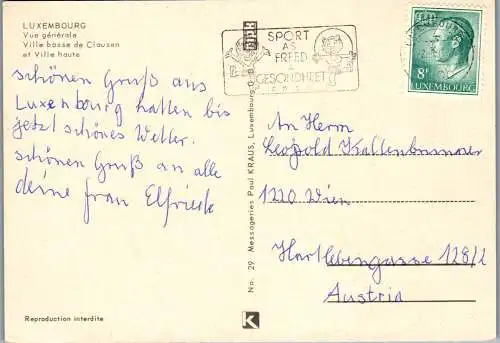 LUXEMBOURG
Vue générale
Ville basse de Clausen
et Ville haute
schönen Gruß aus
Luxenbourg hatten bis
jetzt schönes Wetter.
schönen Gruß an alle
deine frau Elfriede
Reproduction interdite
No. 29 Messageries Paul KRAUS, Luxembourg
K
SPORT
AS
FREED
A
GESONDHEET
8F
LUXEMBOURG
An Herrn
Leopold Kaltenbrunner
1220 Wien
Hartlebengasse 128/2
Austria